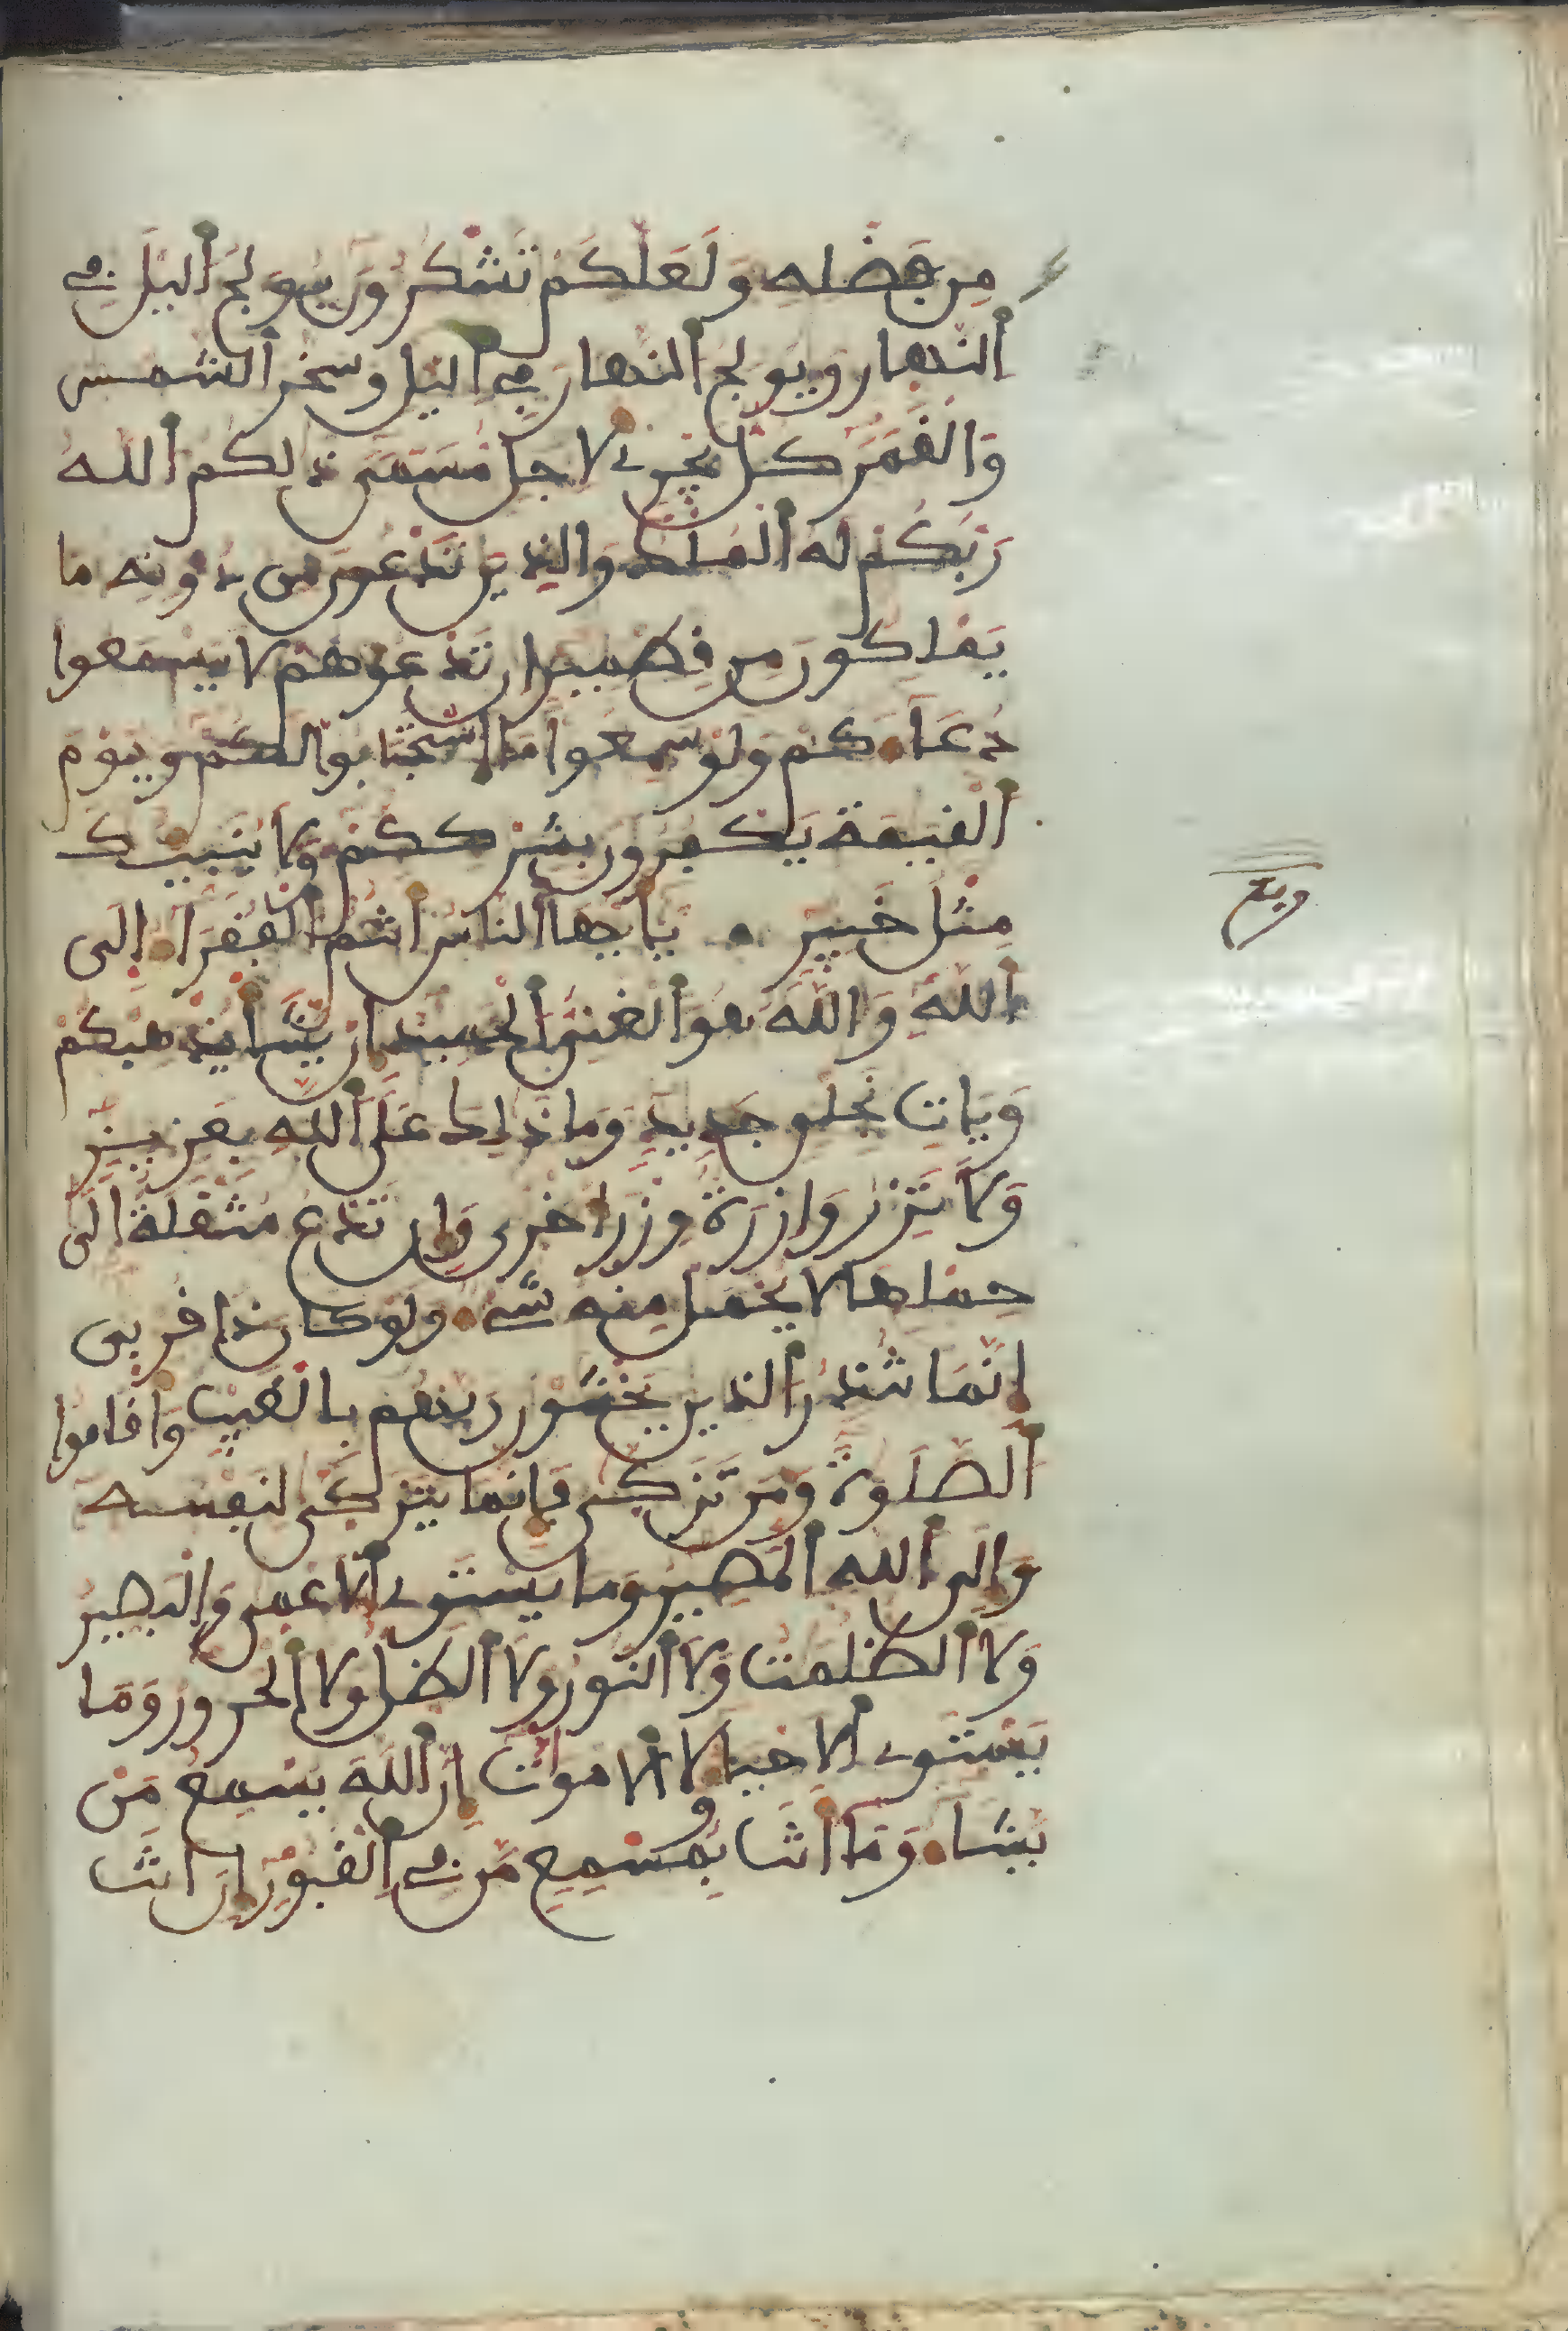 مِن فَضْلِهِ وَلَعَلَّكُمْ تَشْكُرُونَ يُولِجُ أليْلَ فِے
ألنَّهارِ وَيُولِجُ ألنَّهارَ فِے أليْلِ وَسَخَّرَ ألشَّمْسَ
وَالْقَمَرَ كُلٌّ يَجْرِے لِأَجَلٍ مُّسَمًّى ذَلِكُمُ أللهُ
رَبُّكُمْ لَهُ ألْمُلْكُ وَالذِينَ تَدْعُونَ مِن دُونِهِ مَا
يَمْلِكُونَ مِن قِطْمِيرٍ إن تَدْعُوهُمْ لَا يَسْمَعُوا
دُعَآءَكُمْ وَلَوْ سَمِعُوا مَا اسْتَجَابُوا لَكُمْ وَيَوْمَ
ألْقِيَمَةِ يَكْفُرُونَ بِشِرْكِكُمْ وَلَا يُنَبِّئُكَ
مِثْلُ خَبِيرٍ يَأَيُّهَا ألنَّاسُ أنتُمُ ألْفُقَرَآءُ إلَى
أللهِ وَاللهُ هُوَ ألْغَنِيُّ ألْحَمِيدُ إنْ يَّشَأْ يُذْهِبْكُمْ
وَيَاتِ بِخَلْقٍ جَدِيدٍ وَمَا ذَلِكَ عَلَى أللهِ بِعَزِيزٍ
وَلَا تَزِرُ وَازِرَةٌ وِزْرَ أخْرَى وَإِن تَدْعُ مُثْقَلَةٌ الَى
حِمْلِهَا لَا يُحْمَلْ مِنْهُ شَےْءٌ وَلَوْ كَانَ ذَا قُرْبَى
إنَّمَا تُنذِرُ ألذِينَ يَخْشَوْنَ رَبَّهُم بِالْغَيْبِ وَأَقَامُوا
ألصَّلَوةَ وَمَن تَزَكَّى فَإِنَّمَا يَتَزَكَّى لِنَفْسِهِ
وَإِلَى أللهِ ألْمَصِيرُ وَمَا يَسْتَوِے ألَاعْمَى وَالْبَصِيرُ
وَلَا ألظُّلُمَتُ وَلَا ألنُّورُ وَلَا ألظِّلُّ وَلَا ألْحَرُورُ وَمَا
يَسْتَوِے ألَاحْيَآءُ وَلَا ألَامْوَاتُ إنَّ أللهَ يُسْمِعُ مَنْ
يَّشَآءُ وَمَا أنتَ بِمُسْمِعٍ مَّن فِے ألْقُبُورِ إنَ انتَ
ربع